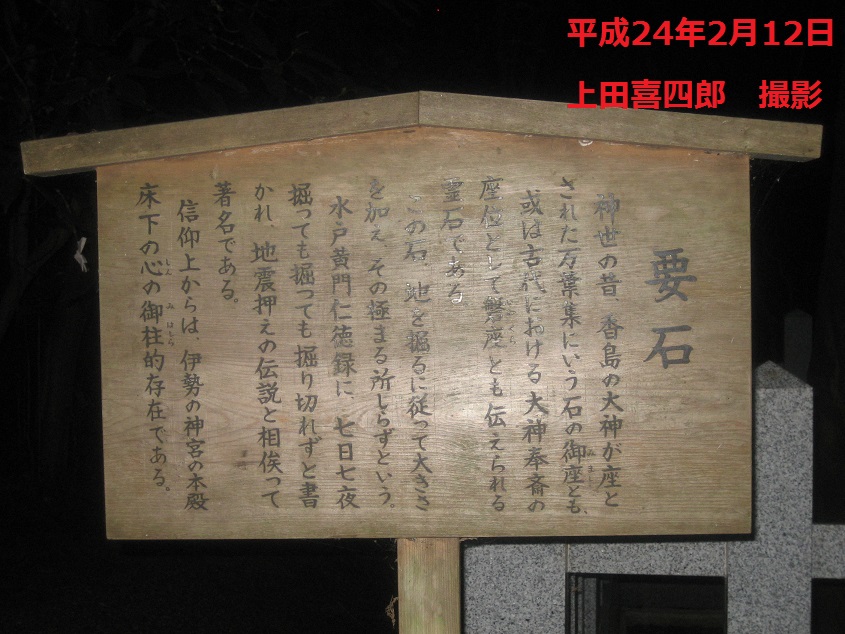 平成24年2月12日
上田喜四郎　撮影
要石
神世の昔、香島の大神が座と
された万葉集にいう石の御座とも、
或は古代における大神奉斎の
座位として磐座とも伝えられる
霊石である
この石、地を掘るに従って大きさ
を加え、その極まる所しらずという。
水戸黄門仁徳録に、七日七夜
掘っても掘っても掘り切れずと書
かれ、地震押えの伝説と相俟って
著名である。
信仰上からは、伊勢の神宮の本殿
床下の心の御柱的存在である。